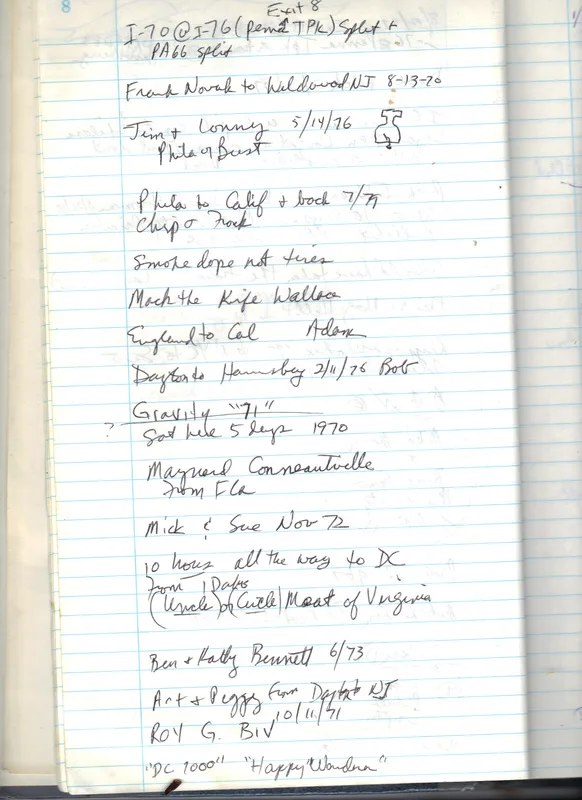 8
Exit 8
I-70 @ I-76 (Penna TPK) split +
PA66 split
Frank Novak to Wildwood NJ 8-13-70
Jim + Lonny 5/14/76
Phila or Bust
Phila to Calif + back 7/79
Chip &
Smoke dope not tires
Mack the Kife Wallace
England to Cal Adam
Dayton to Harrisburg 2/11/76 Bob
Gravity "71"
? Sat here 5 days 1970
Maynard Conneautville
From Fla
Mick & Sue Nov 72
10 hours all the way to DC
from
(Uncle) or (Circle) Moat of Virginia
Ben + Kathy Bennett 6/73
Art + Peggy from NJ
10/11/71
ROY G. BIV
"DC 7000" "Happy Wanderer"